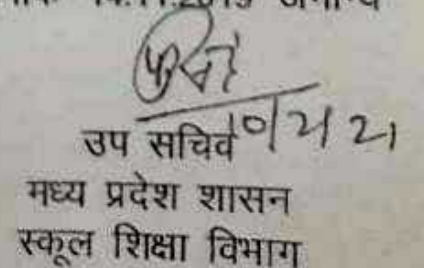 10/2/21
उप सचिव
मध्य प्रदेश शासन
स्कूल शिक्षा विभाग